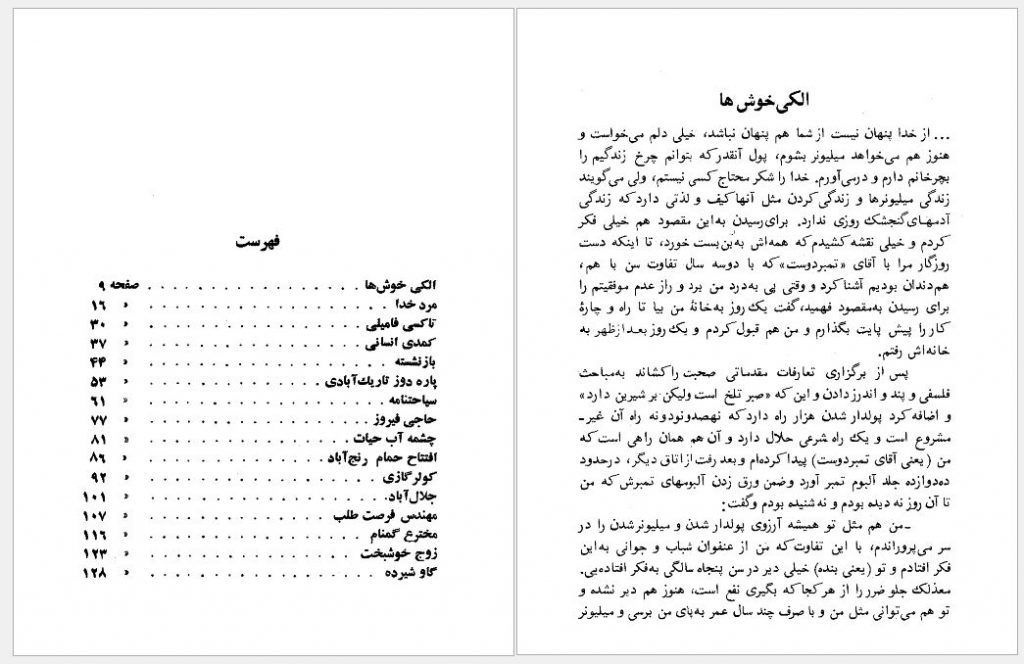 الکی‌خوش‌ها
... از خدا پنهان نیست از شما هم پنهان نباشد، خیلی دلم می‌خواست و
هنوز هم می‌خواهد میلیونر بشوم، پول آنقدر که بتوانم چرخ زندگیم را
بچرخانم دارم و درمی‌آورم. خدا را شکر محتاج کسی نیستم، ولی می‌گویند
زندگی میلیونرها و زندگی کردن مثل آنها کیف و لذتی دارد که زندگی
آدمهای گنجشک روزی ندارد. برای رسیدن به این مقصود هم خیلی فکر
کردم و خیلی نقشه کشیدم که همه‌اش به‌بن‌بست خورد، تا اینکه دست
روزگار مرا با آقای «تمبردوست» که با دوسه سال تفاوت سن با هم،
هم‌دندان بودیم آشنا کرد و وقتی پی به‌درد من برد و راز عدم موفقیتم را
برای رسیدن به‌مقصود فهمید، گفت یک روز به‌خانهٔ من بیا تا راه و چارهٔ
کار را پیش پایت بگذارم و من هم قبول کردم و یک روز بعد از ظهر به
خانه‌اش رفتم.
پس از برگزاری تعارفات مقدماتی صحبت را کشاند به‌مباحث
فلسفی و پند و اندرز دادن و این که «صبر تلخ است ولیکن بر شیرین دارد»
و اضافه کرد پولدار شدن هزار راه دارد که نهصدونودونه راه آن غیر-
مشروع است و یک راه شرعی حلال دارد و آن هم همان راهی است که
من (یعنی آقای تمبردوست) پیدا کرده‌ام و بعد رفت از اتاق دیگر، درحدود
ده‌دوازده جلد آلبوم تمبر آورد و ضمن ورق زدن آلبومهای تمبرش که من
تا آن روز نه دیده بودم و نه شنیده بودم وگفت:
-من هم مثل تو همیشه آرزوی پولدار شدن و میلیونرشدن را در
سر می‌پروراندم، با این تفاوت که من از عنفوان شباب و جوانی به‌این
فکر افتادم و تو (یعنی بنده) خیلی دیر در سن پنجاه سالگی به‌فکر افتاده‌یی.
معذلک جلو ضرر را از هر کجا که بگیری نفع است، هنوز هم دیر نشده و
تو هم می‌توانی مثل من و با صرف چند سال عمر به‌پای من برسی و میلیونر
فهرست
الکی خوش‌ها . . . . . . . . . . . . صفحه ۹
مرد خدا . . . . . . . . . . . . » ۱۶
تاکسی فامیلی . . . . . . . . . . . . » ۳۰
کمدی انسانی . . . . . . . . . . . . » ۳۷
بازنشسته . . . . . . . . . . . . » ۴۴
پاره دوز تاریک‌آبادی . . . . . . . . . . » ۵۳
سیاحتنامه . . . . . . . . . . . . » ۶۱
حاجی فیروز . . . . . . . . . . . . » ۷۷
چشمه آب حیات . . . . . . . . . . . » ۸۱
افتتاح حمام رنج‌آباد . . . . . . . . . . » ۸۶
کولر گازی . . . . . . . . . . . . » ۹۲
جلال‌آباد . . . . . . . . . . . . » ۱۰۱
مهندس فرصت طلب . . . . . . . . . . » ۱۰۷
مخترع گمنام . . . . . . . . . . . » ۱۱۶
زوج خوشبخت . . . . . . . . . . . » ۱۲۳
گاو شیرده . . . . . . . . . . . . » ۱۲۸